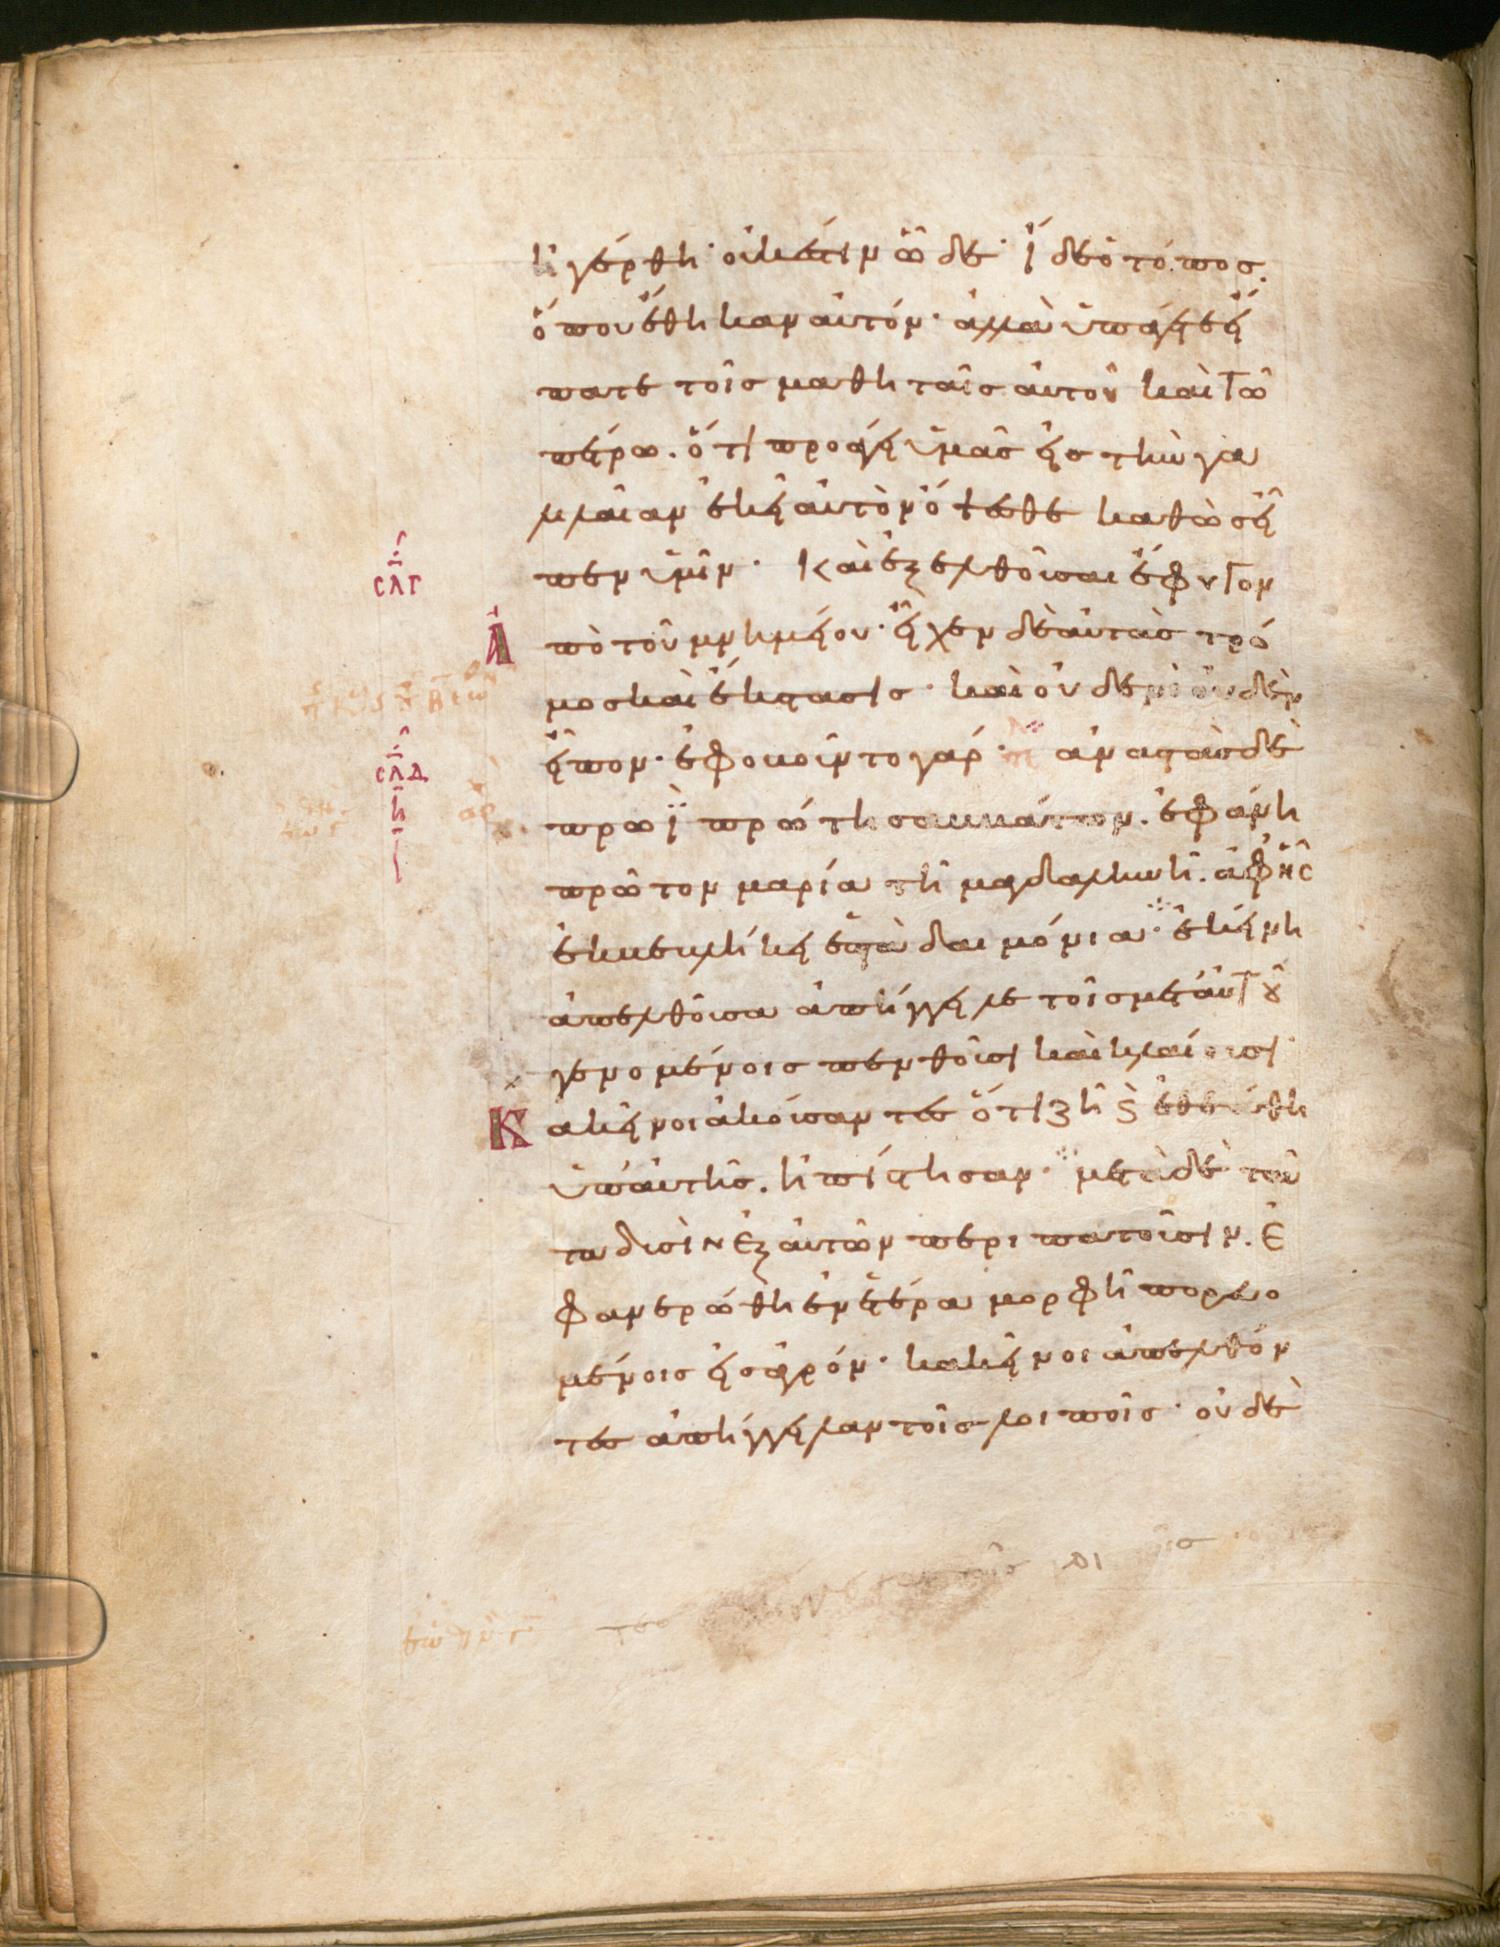 ἠγέρθη· οὐκ ἔστιν ὧδε· ἴδε ὁ τόπος.
ὅπου ἔθηκαν αὐτόν· ἀλλὰ ὑπάγετε εἴ
πατε τοῖς μαθηταῖς αὐτοῦ καὶ τῶ
πέτρω. ὅτι προάγει ὑμᾶς εἰς τὴν γα
λιλαίαν ἐκεῖ αὐτὸν ὄψεσθε καθὼς εἶ
πεν ὑμῖν· Καὶ ἐξελθοῦσαι ἔφυγον
σλγ
Ἀ
πὸ τοῦ μνημείου· εἶχεν δὲ αὐτὰς τρό
μος καὶ ἔκστασις· καὶ οὐδενὶ οὐδὲν
εἶπον· ἐφοβοῦντο γάρ· ἀναστὰς δὲ
σλδ
η
πρωῒ πρώτη σαββάτου. ἐφάνη
πρῶτον μαρία τῆ μαγδαληνῆ. ἀφ ἧς
ἐκβεβλήκει ἑπτὰ δαιμόνια· ἐκείνη
ἀπελθοῦσα ἀπήγγειλε τοῖς μετ αὐτοῦ
γενομένοις πενθοῦσι καὶ κλαίουσι
Κ
ἀκεῖνοι ἀκούσαντες ὅτι ζῆ ϗ ἐθεάθη
ὑπ αὐτῆς. ἠπίστησαν· μετὰ δὲ ταῦ
τα δυσὶν ἐξ αὐτῶν περιπατοῦσιν. ἐ
φανερώθη ἐν ἑτέρα μορφῆ πορευο
μένοις εἰς ἀγρόν· κακεῖνοι ἀπελθόν
τες ἀπήγγειλαν τοῖς λοιποῖς· οὐδὲ